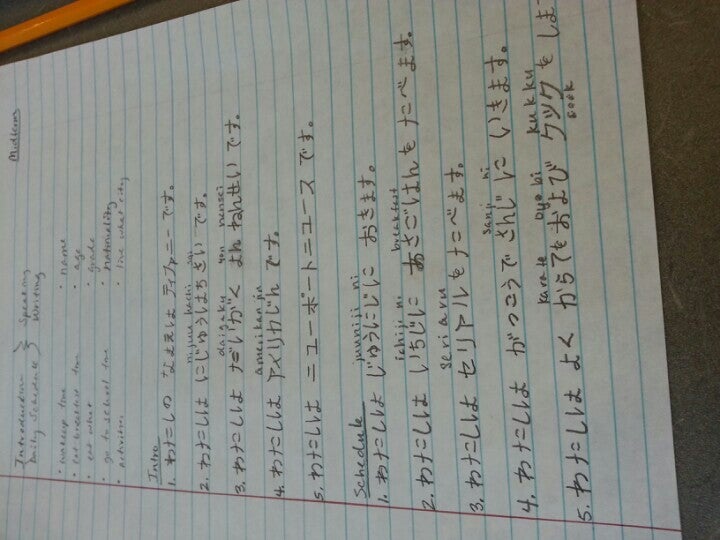 Midterms
Introduction } Speaking
Daily Schedule } Writing
• wakeup time • name
• eat breakfast time • age
• eat what • grade
• go to school time • nationality
• activities • live what city
Intro
1. わたしの なまえは ティファニーです。
nijuu hachi sai
2. わたしは にじゅうはちさい です。
daigaku yon nensei
3. わたしは だいがく よんねんせい です。
amerikan jin
4. わたしは アメリカじん です。
5. わたしは ニューポートニュース です。
Schedule
juuniji ni
1. わたしは じゅうにじに おきます。
ichiji ni breakfast
2. わたしは いちじに あさごはんを たべます。
seriaru
3. わたしは セリアルを たべます。
sanji ni
4. わたしは がっこうで さんじに いきます。
karate oyobi kukku
5. わたしは よく からておよび クックを しま
cook